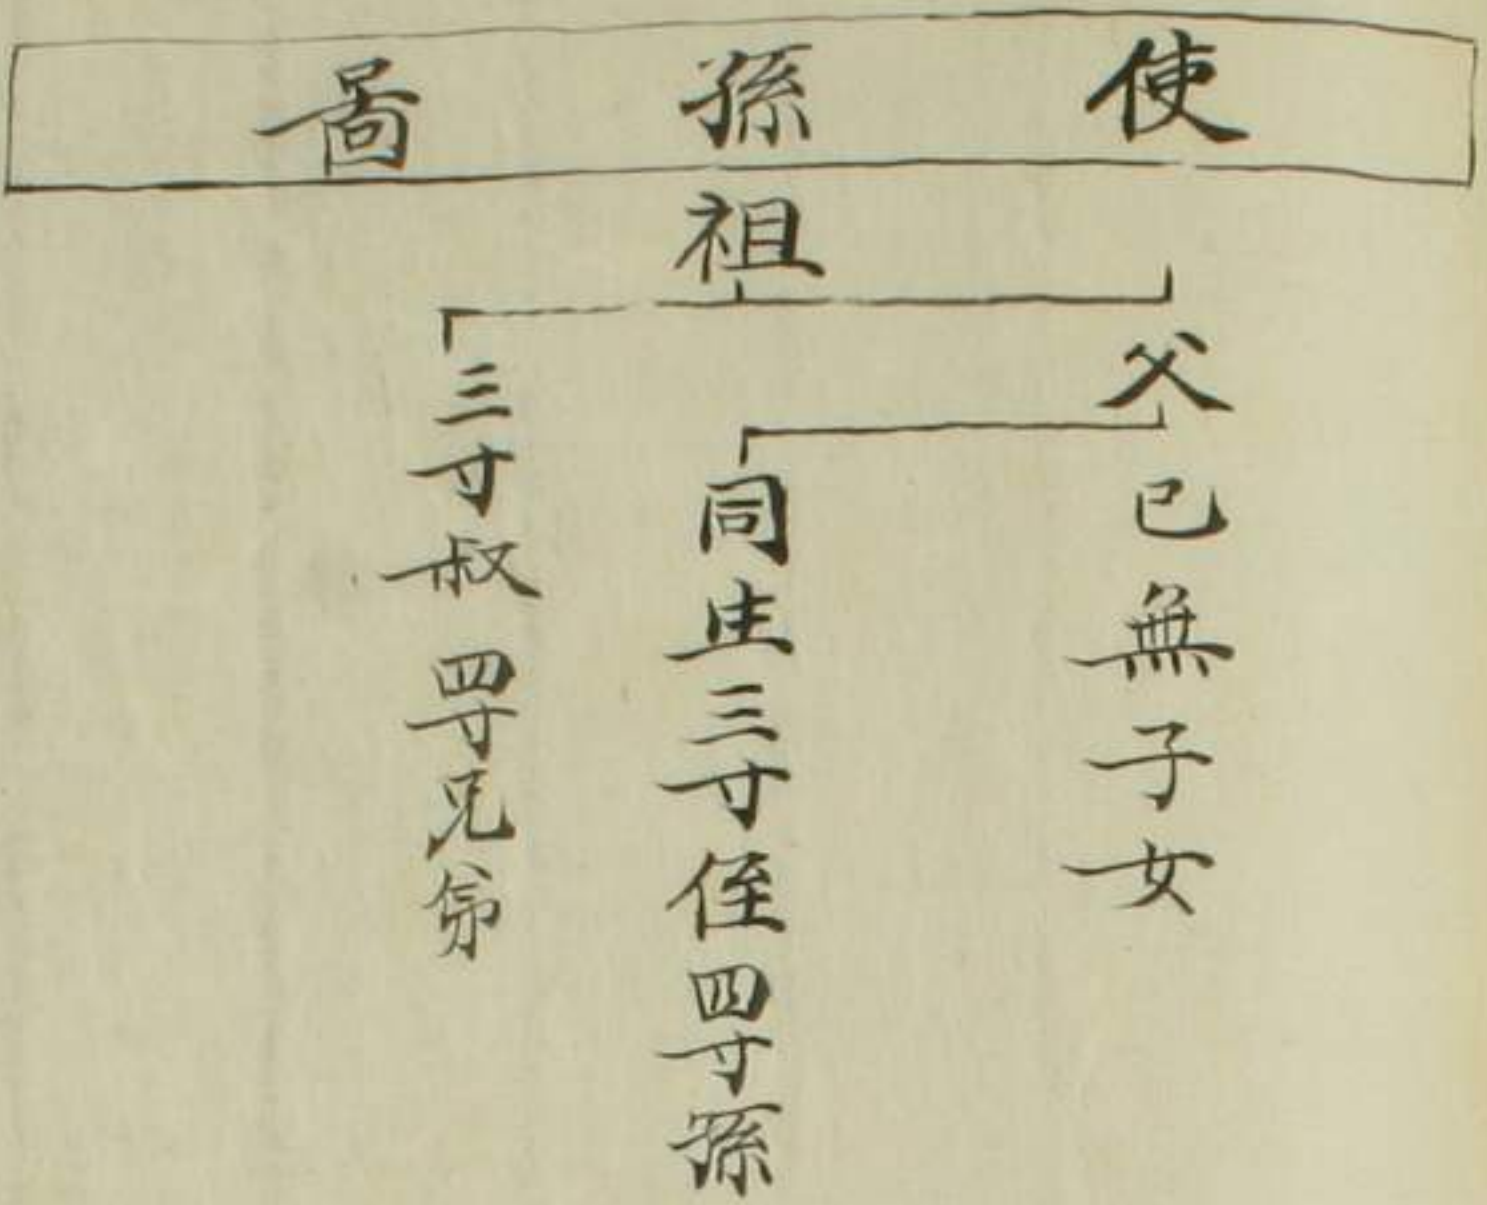 使孫啚
祖
父
己無子女
同生三寸侄四寸孫
三寸叔四寸兄弟